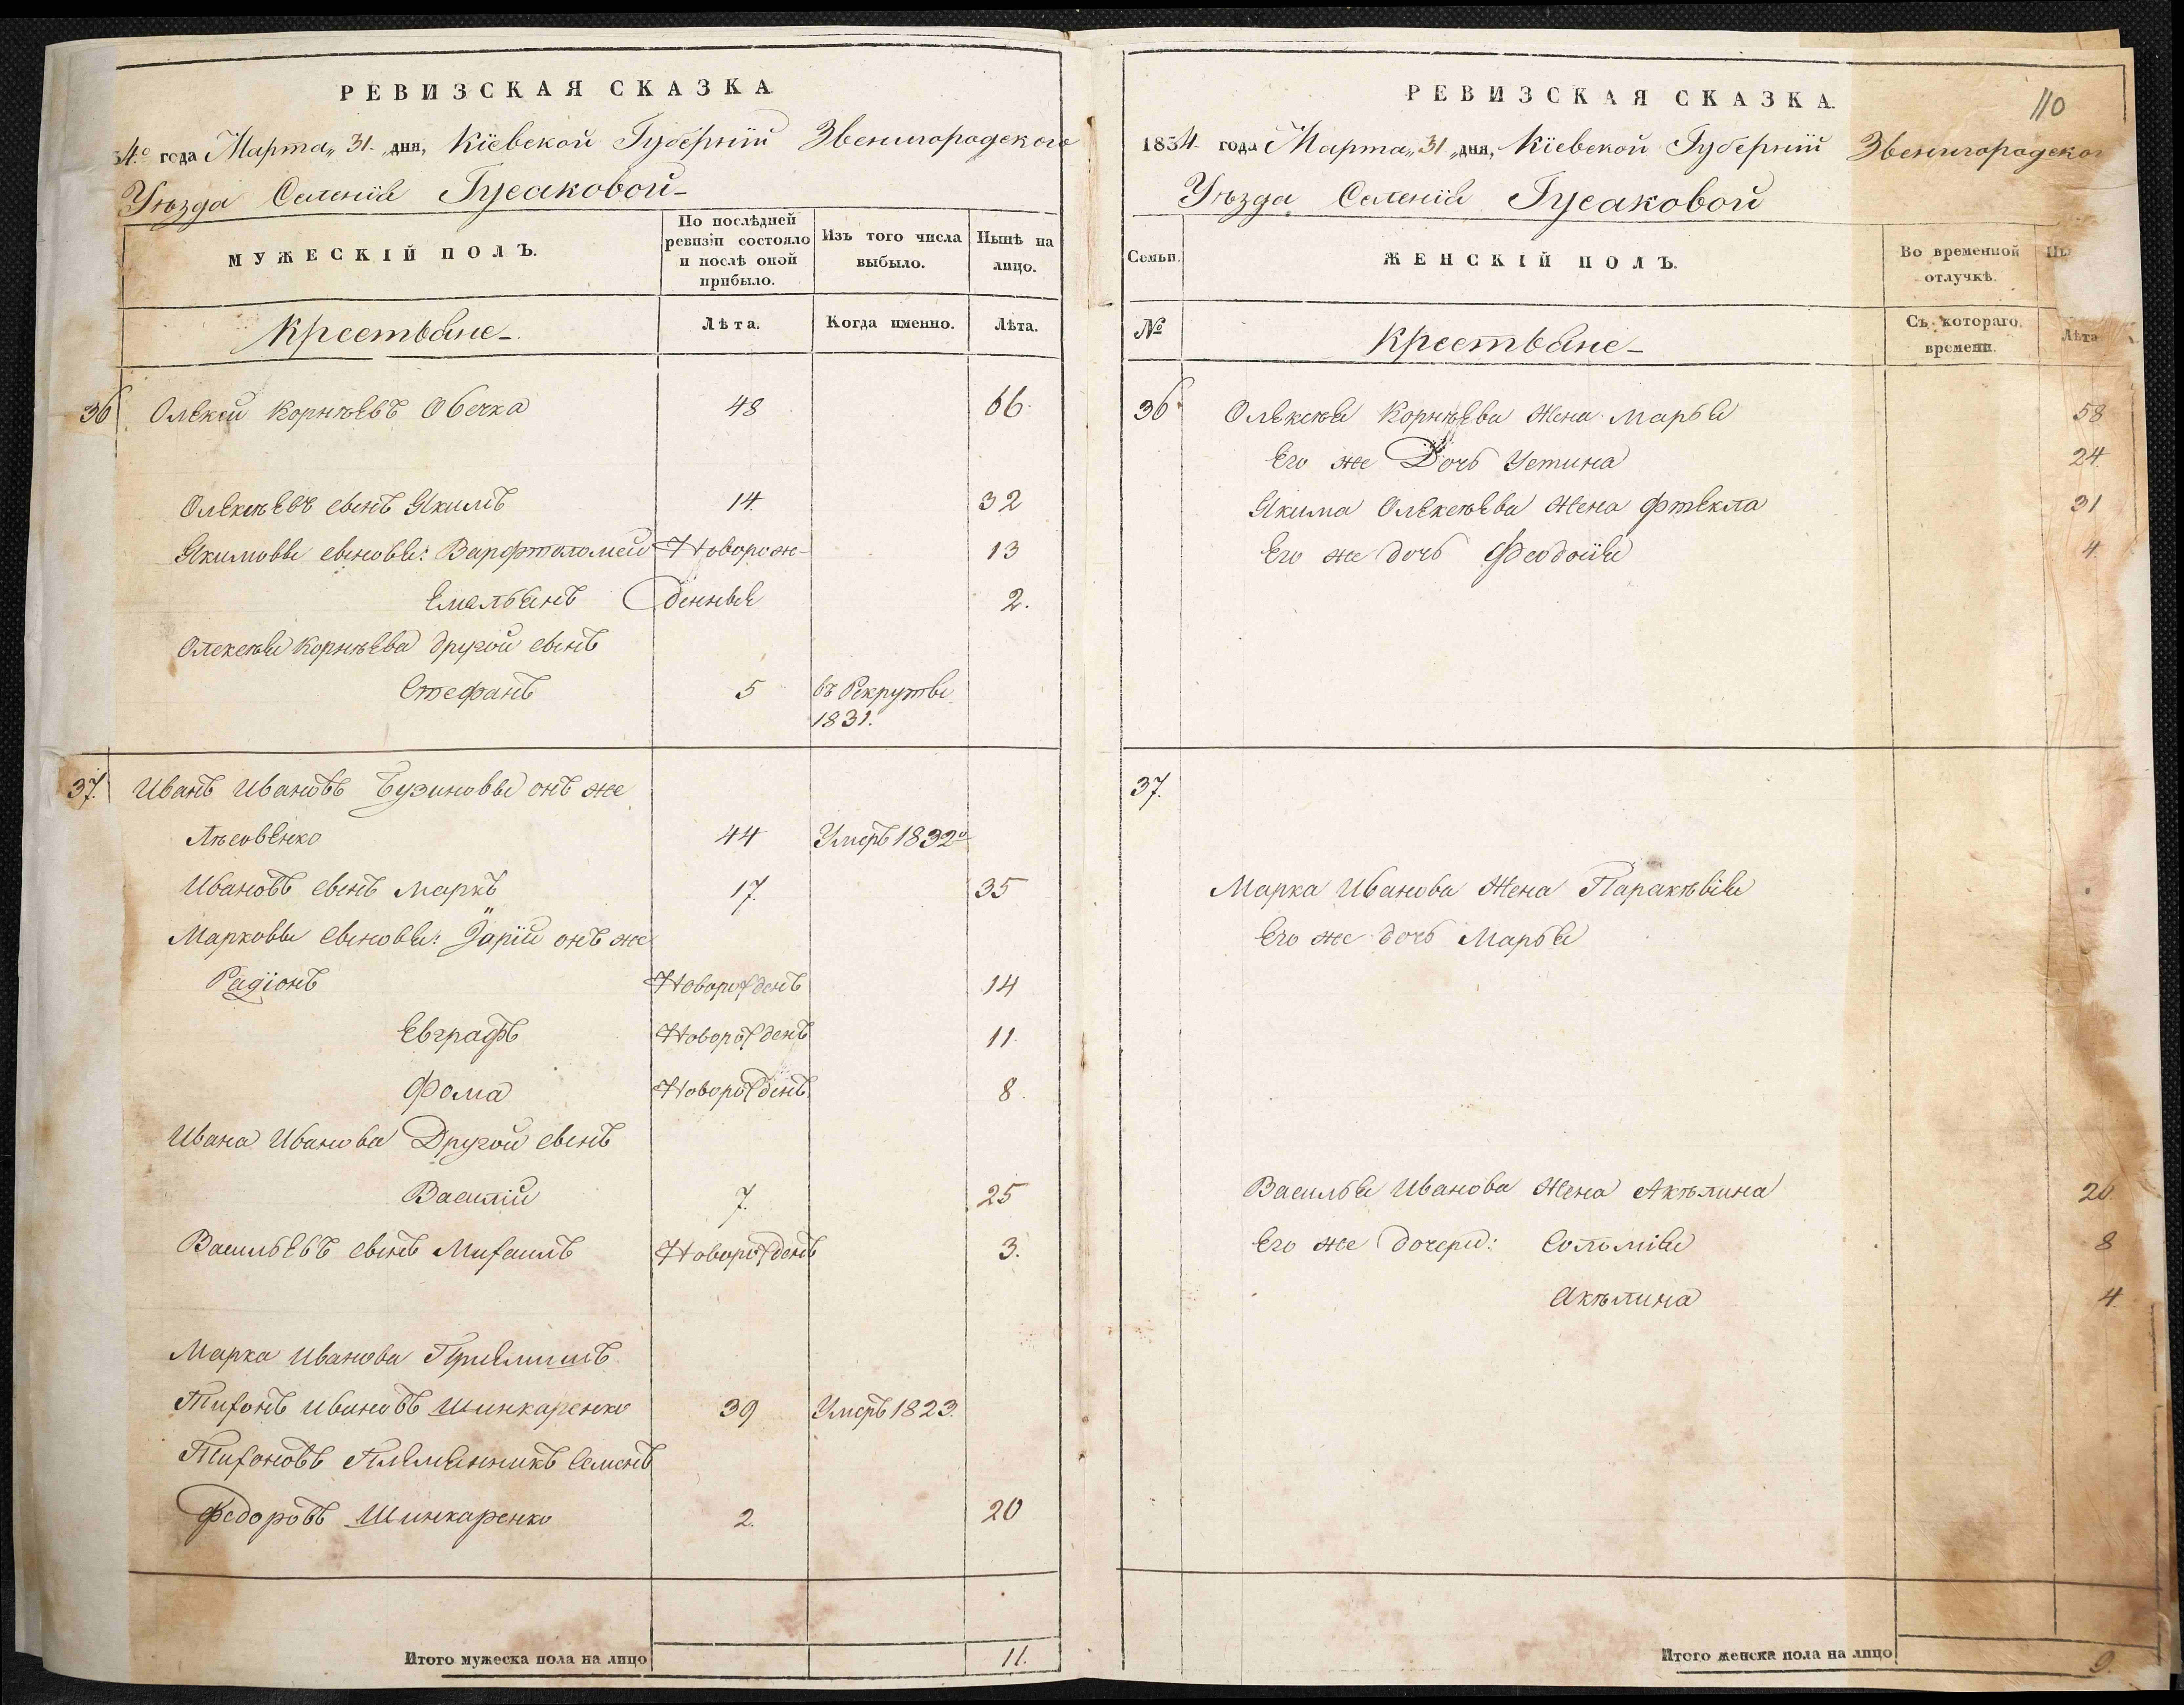 РЕВИЗСКАЯ СКАЗКА
34.о года Марта „31„ дня, Кіевской Губерніи Звенигородского
Уѣзда Селенія Гусаковой
МУЖЕСКІЙ ПОЛЪ.
По послѣдней ревизіи состояло и послѣ оной прибыло.
Изъ того числа выбыло.
Нынѣ на лицо.
Крестьяне
Лѣта.
Когда именно.
Лѣта.
36 Олексѣй Корнѣевъ Овечка 48 66.
Олексѣевъ сынъ Якимъ 14. 32
Якимовы сыновья: Варфтоломей Новорож- 13
Емельянъ денные 2.
Олексѣя Корнѣева другой сынъ
Стефанъ 5 въ Рекруты
1831.
37. Иванъ Ивановъ Бузиновый онъ же
Лѣсовенко 44 Умеръ 1832о
Ивановъ сынъ Маркъ 17. 35
Марковы сыновья: онъ же
Радіонъ Новорожденъ 14
Евграфъ Новорожденъ 11.
Фома Новорожденъ 8.
Ивана Иванова Другой сынъ
Василій 7. 25
Васильевъ сынъ Михаилъ Новорожденъ 3.
Марка Иванова Пріемышъ
Тихонъ Ивановъ Шинкаренко 39 Умеръ 1823.
Тихоновъ Племянникъ Семенъ
Федоровъ Шинкаренко 2. 20
Итого мужеска пола на лицо 11.
110
РЕВИЗСКАЯ СКАЗКА.
1834 года Марта „31„ дня, Кіевской Губерніи Звенигородског
Уѣзда Селенія Гусаковой
Семьи.
ЖЕНСКІЙ ПОЛЪ.
Во временной отлучкѣ.
Ны
№
Крестьяне
Съ котораго времени.
Лѣта
36 Олексѣя Корнѣева Жена Марья 58
Его же Дочь Устина 24.
Якима Олексѣева Жена Фтекла 31
Его же дочь Феодосія 4.
37.
Марка Иванова Жена Параскѣвія
Его же дочь Марья
Василья Иванова Жена Акѣлина 20
Его же дочери: Соломія 8
Акѣлина 4.
Итого женска пола на лицо 9.